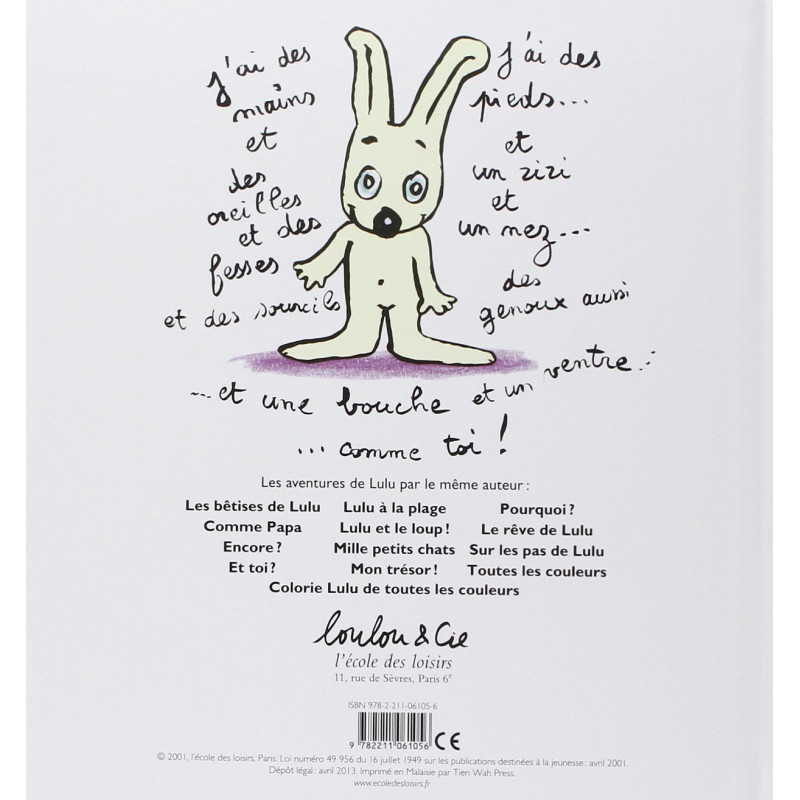 J'ai des
mains
et
des
oreilles
et des
fesses
et des sourcils
J'ai des
pieds...
et
un zizi
et
un nez...
des
genoux aussi
...et une bouche et un ventre...
...comme toi !
Les aventures de Lulu par le même auteur :
Les bêtises de Lulu Lulu à la plage Pourquoi ?
Comme Papa Lulu et le loup ! Le rêve de Lulu
Encore ? Mille petits chats Sur les pas de Lulu
Et toi ? Mon trésor ! Toutes les couleurs
Colorie Lulu de toutes les couleurs
loulou & Cie
l'école des loisirs
11, rue de Sèvres, Paris 6e
ISBN 978-2-211-06105-6
9 782211 061056 CE
© 2001, l'école des loisirs, Paris. Loi numéro 49 956 du 16 juillet 1949 sur les publications destinées à la jeunesse : avril 2001.
Dépôt légal : avril 2013. Imprimé en Malaisie par Tien Wah Press.
www.ecoledesloisirs.fr